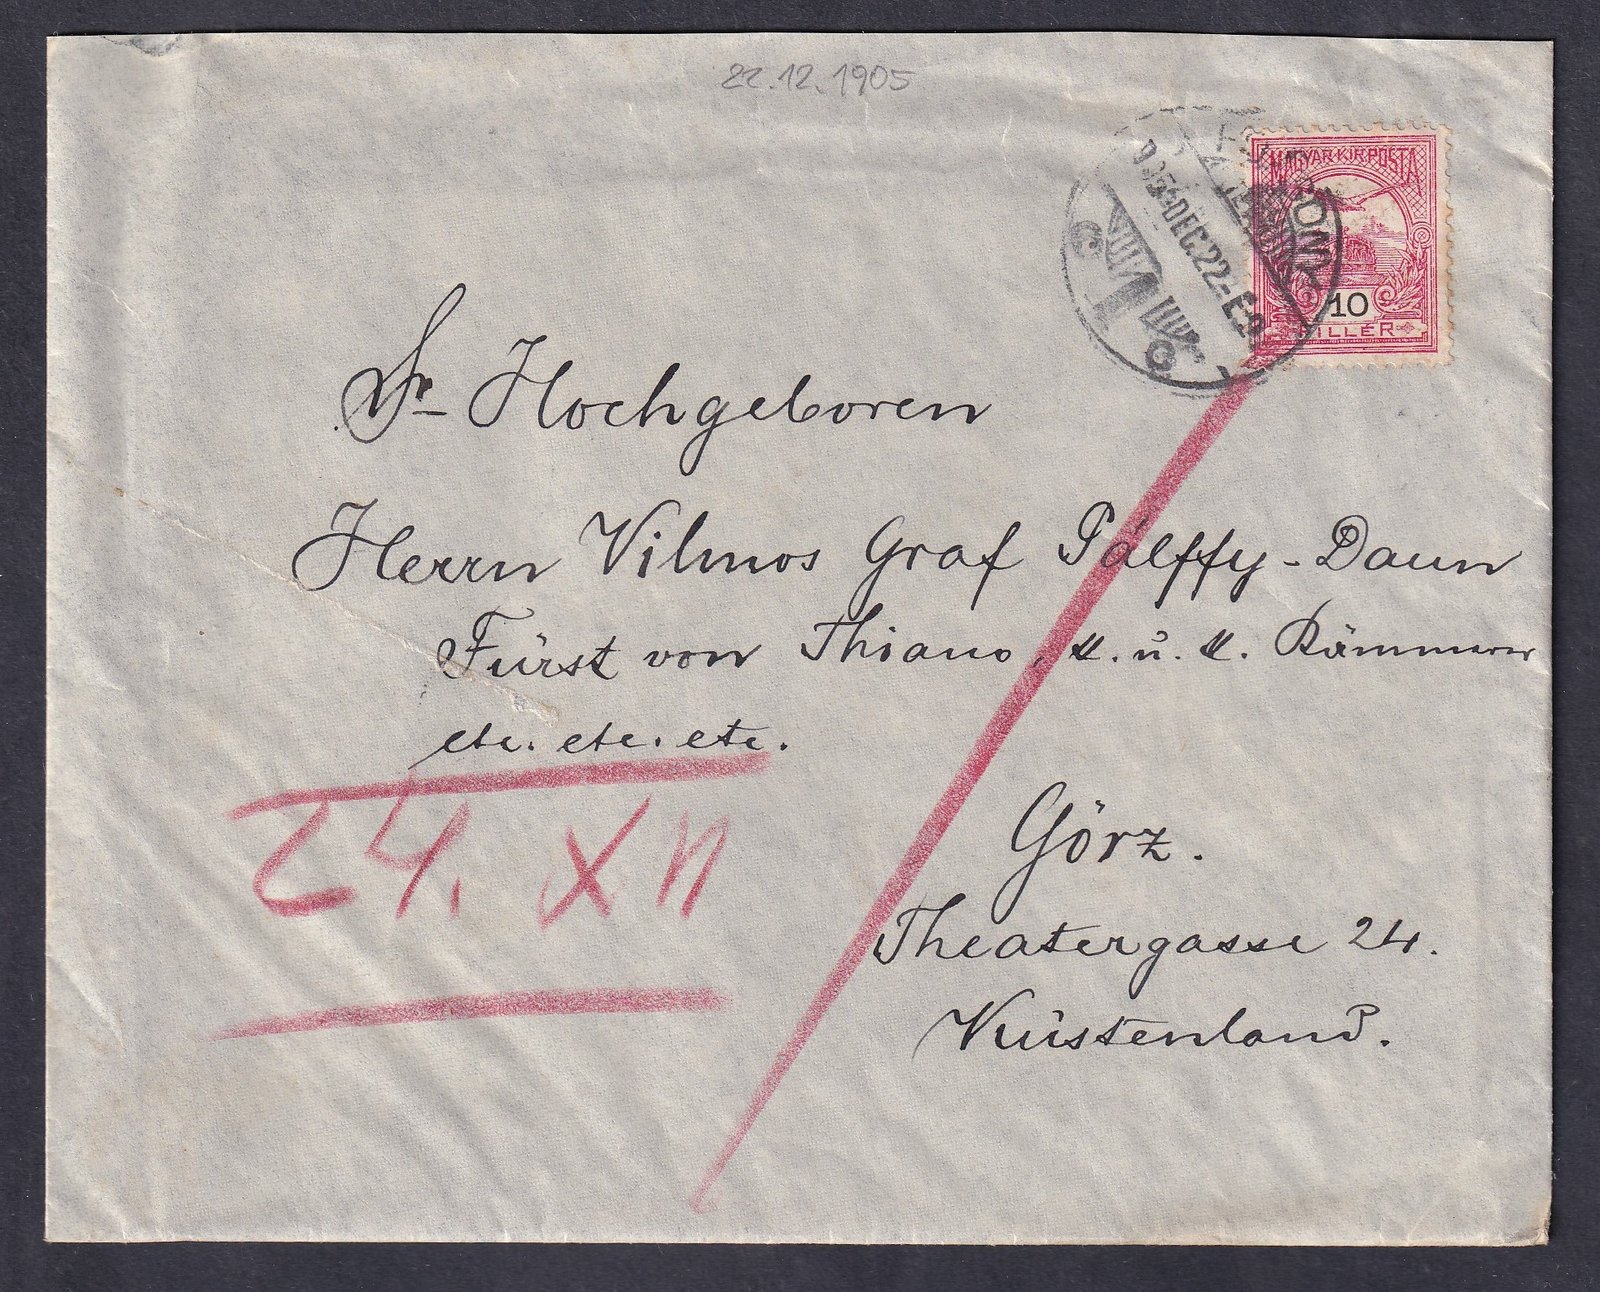 22.12.1905
MAGYAR KIR. POSTA
10
FILLÉR
905 DEC. 22-E
Sr Hochgeboren
Herrn Vilmos Graf Pálffy-Daun
Fürst von Thiano, k. u. k. Kämmerer
etc. etc. etc.
24. XII
Görz.
Theatergasse 24.
Küstenland.